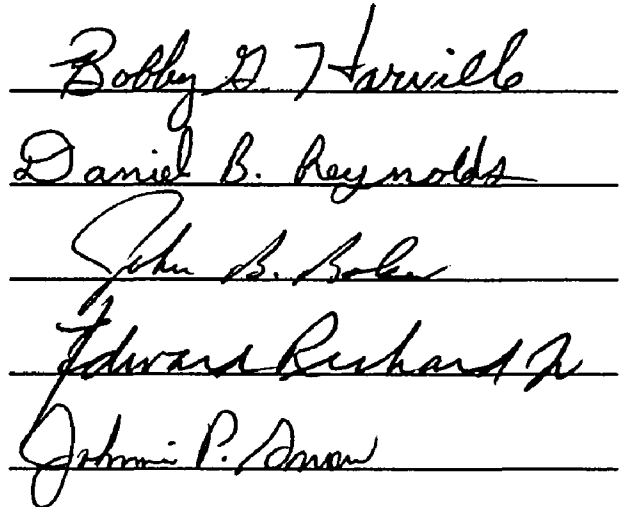 Bobby G. Harville
Daniel B. Reynolds
John B. Baker
Edward Richard Jr
Johnnie P. Snow